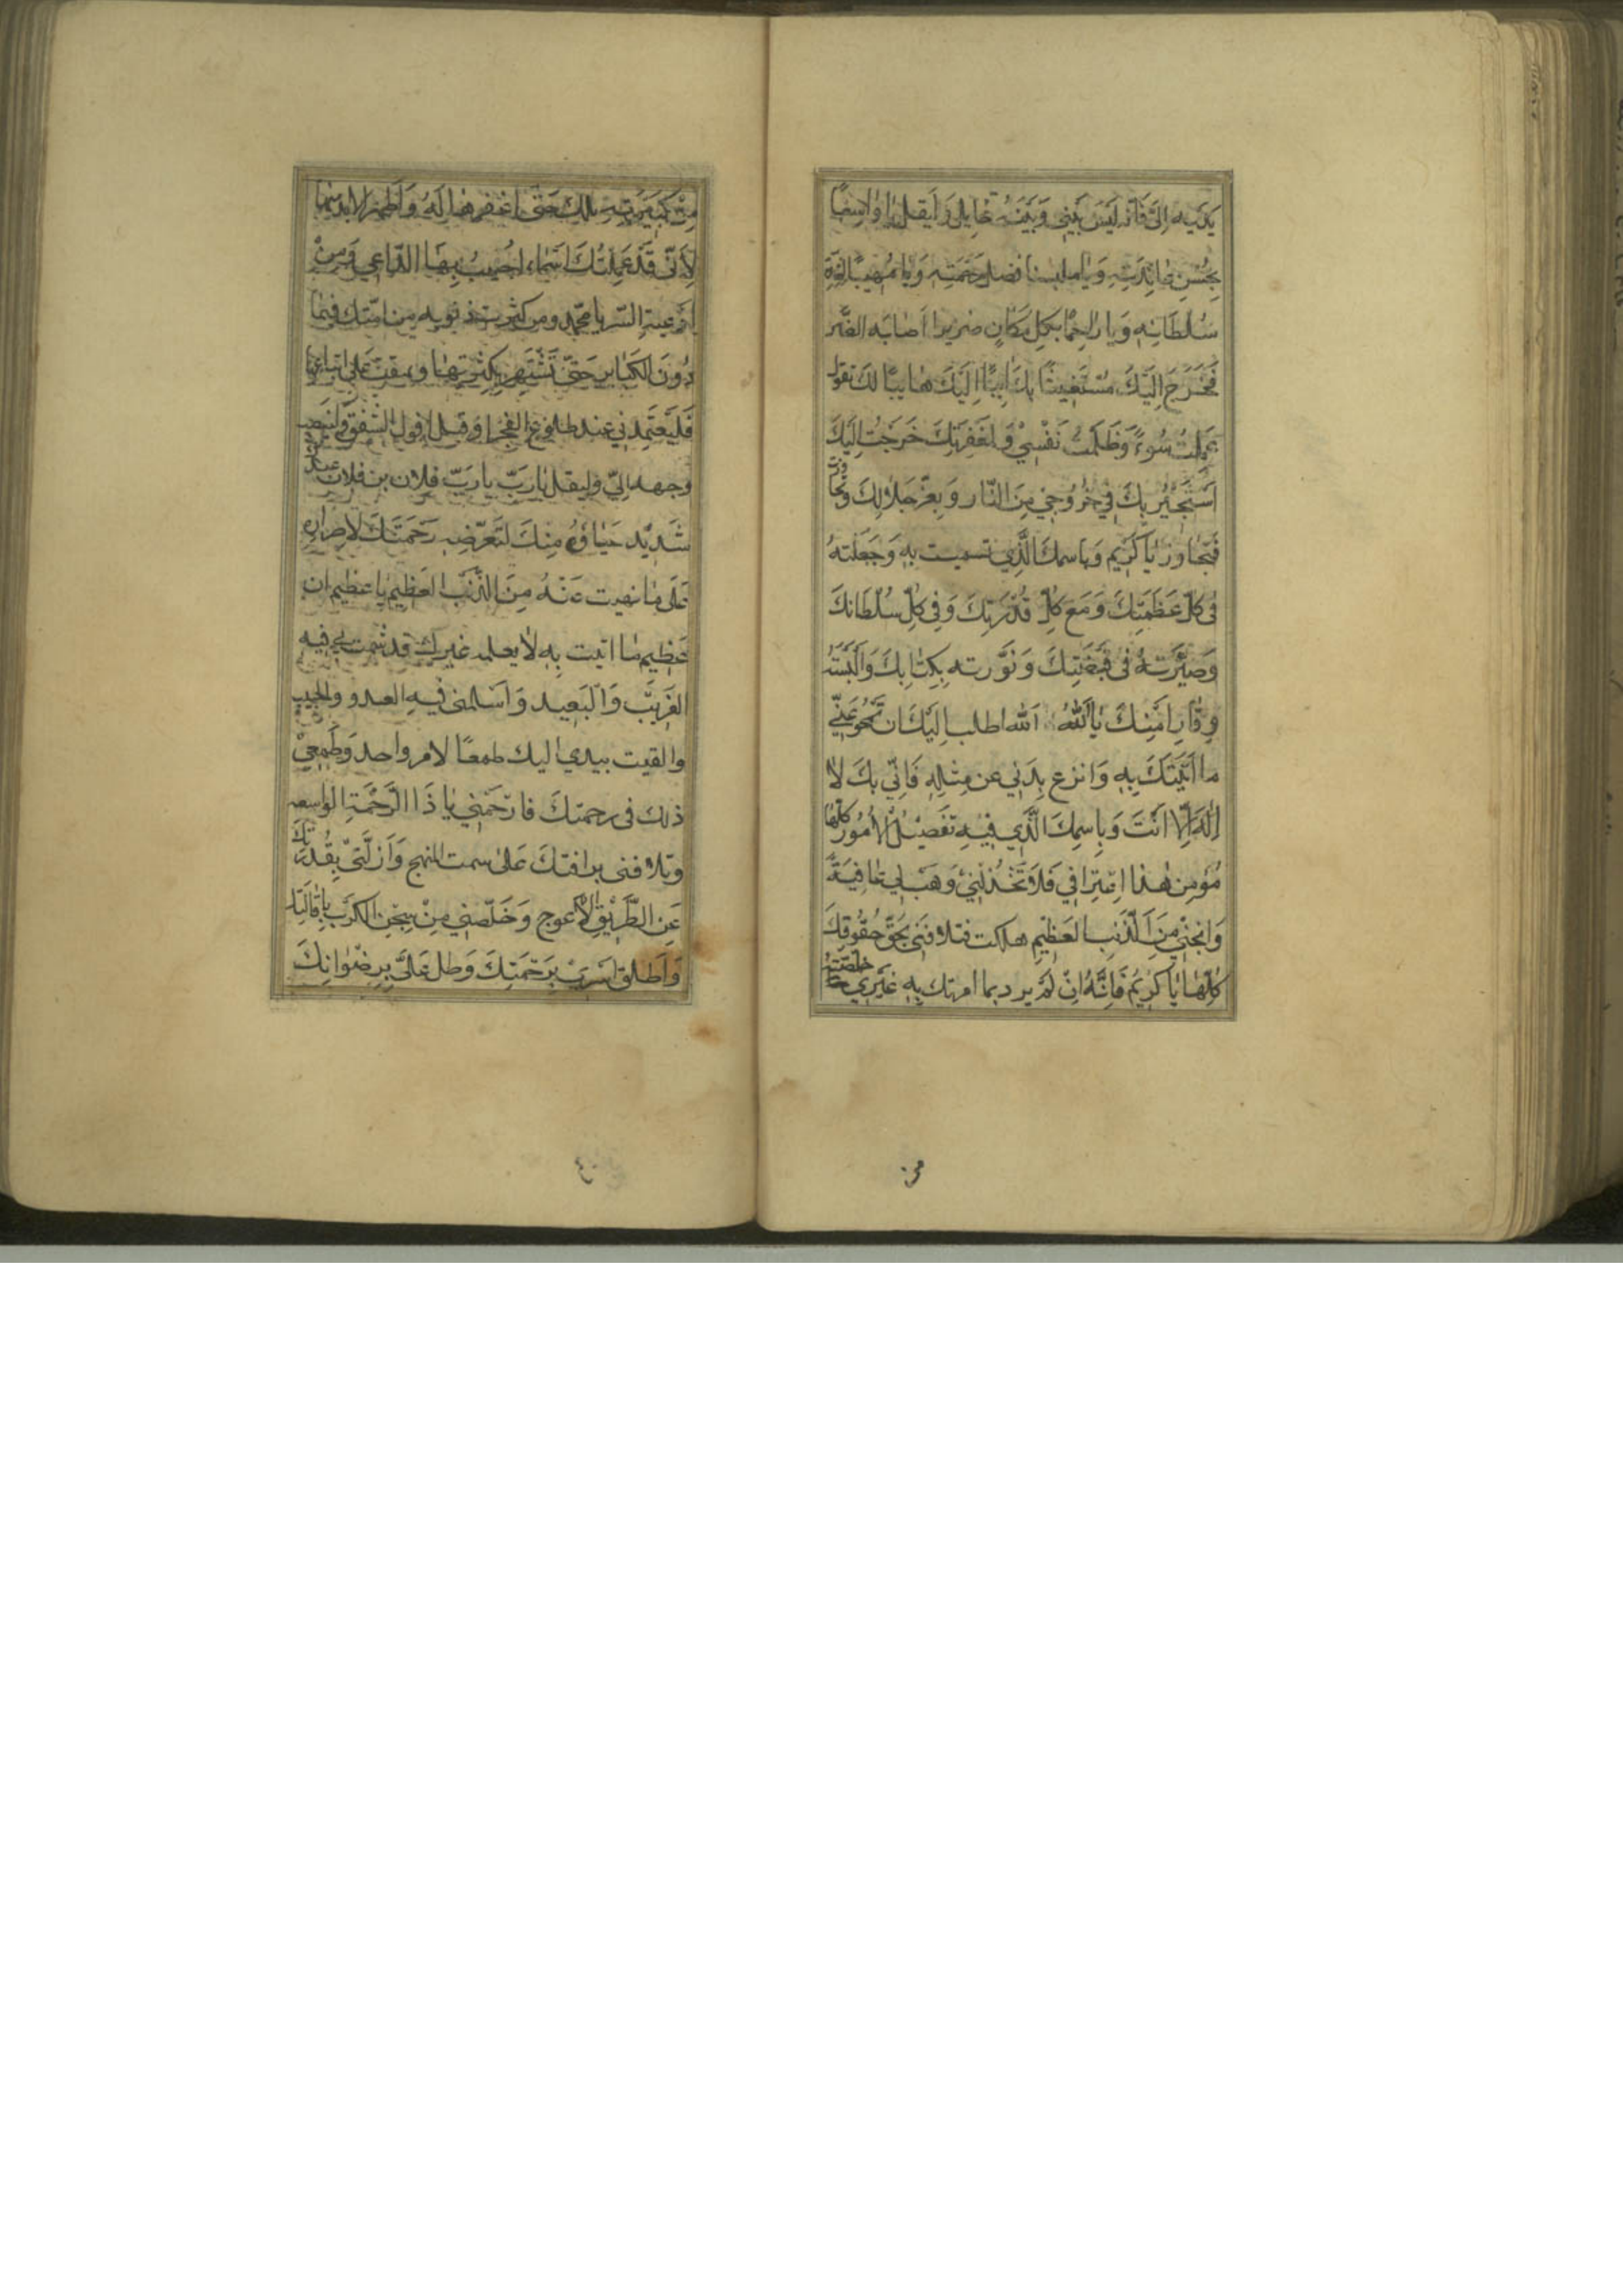 يديه الي فانه ليس بيني وبينه حايل و ليقل يا واسعًا
بِحُسنِ عائدته ويا ملبسنا فضل رحمته ويا مهيبًا لشدة
سُلطانه ويا راحمًا بكل مكان ضريرا اصابه الضر
فخرج اليك مستغيثًا بك ايبًا اليك هايبًا لك يقول
عملت سُوءً وظلمت نفسي ولمغفرتك خرجت اليك
استجير بك في خروجي من النار وبعز جلالك تجاوزت
فتجاوز يا كريم وباسمك الذي تسميت به وجعلته
في كل عظمتك ومع كل قدرتك وفي كل سلطانك
وصيرته في قبضتك ونورته بكتابك والبسته
وقارا منك يا الله الله اطلب اليك ان تمحو عني
ما اتيتك به وانزع بدني عن مثله فاني بك لا
اله الا انت وباسمك الذي فيه تفصيل الامور كلها
مؤمن هذا اعترافي فلا تخذلني وهب لي عافية
وانجني من الذنب العظيم هلكت فتلافني بحق حقوقك
كلها يا كريم فانه ان لم يرد بما امرتك به غيري خلصته
من كبيرته تلك حتى اغفرها له واطهره الابد منها
لأني قد علمتك اسماء اجيب بها الداعي ومن
ادعية السر يا محمد ومن كثرت ذنوبه من امتك فيما
دون الكباير حتى تشتهر بكثرتها ويمقت على اتباعها
فليعتمدني عند طلوع الفجر او قبل افول الشفق ولينصب
وجهه الي وليقل يا رب يا رب فلان بن فلان عبدك
شديد حياؤه منك لتعرضه رحمتك لاصراره
على ما نهيت عنه من الذنب العظيم يا عظيم ان
عظيم ما اتيت به لا يعلمه غيرك قد شمت بي فيه
القريب والبعيد واسلمني فيه العدو والحبيب
والقيت بيدي اليك طمعًا لامر واحد وطمعي
ذلك في رحمتك فارحمني يا ذا الرحمة الواسعه
وتلافني برافتك على سمت المنهج وازلني بقدرتك
عن الطريق الاعوج وخلصني من سجن الكرب باقالتك
واطلق اسري برحمتك وطل علي برضوانك
٤٠